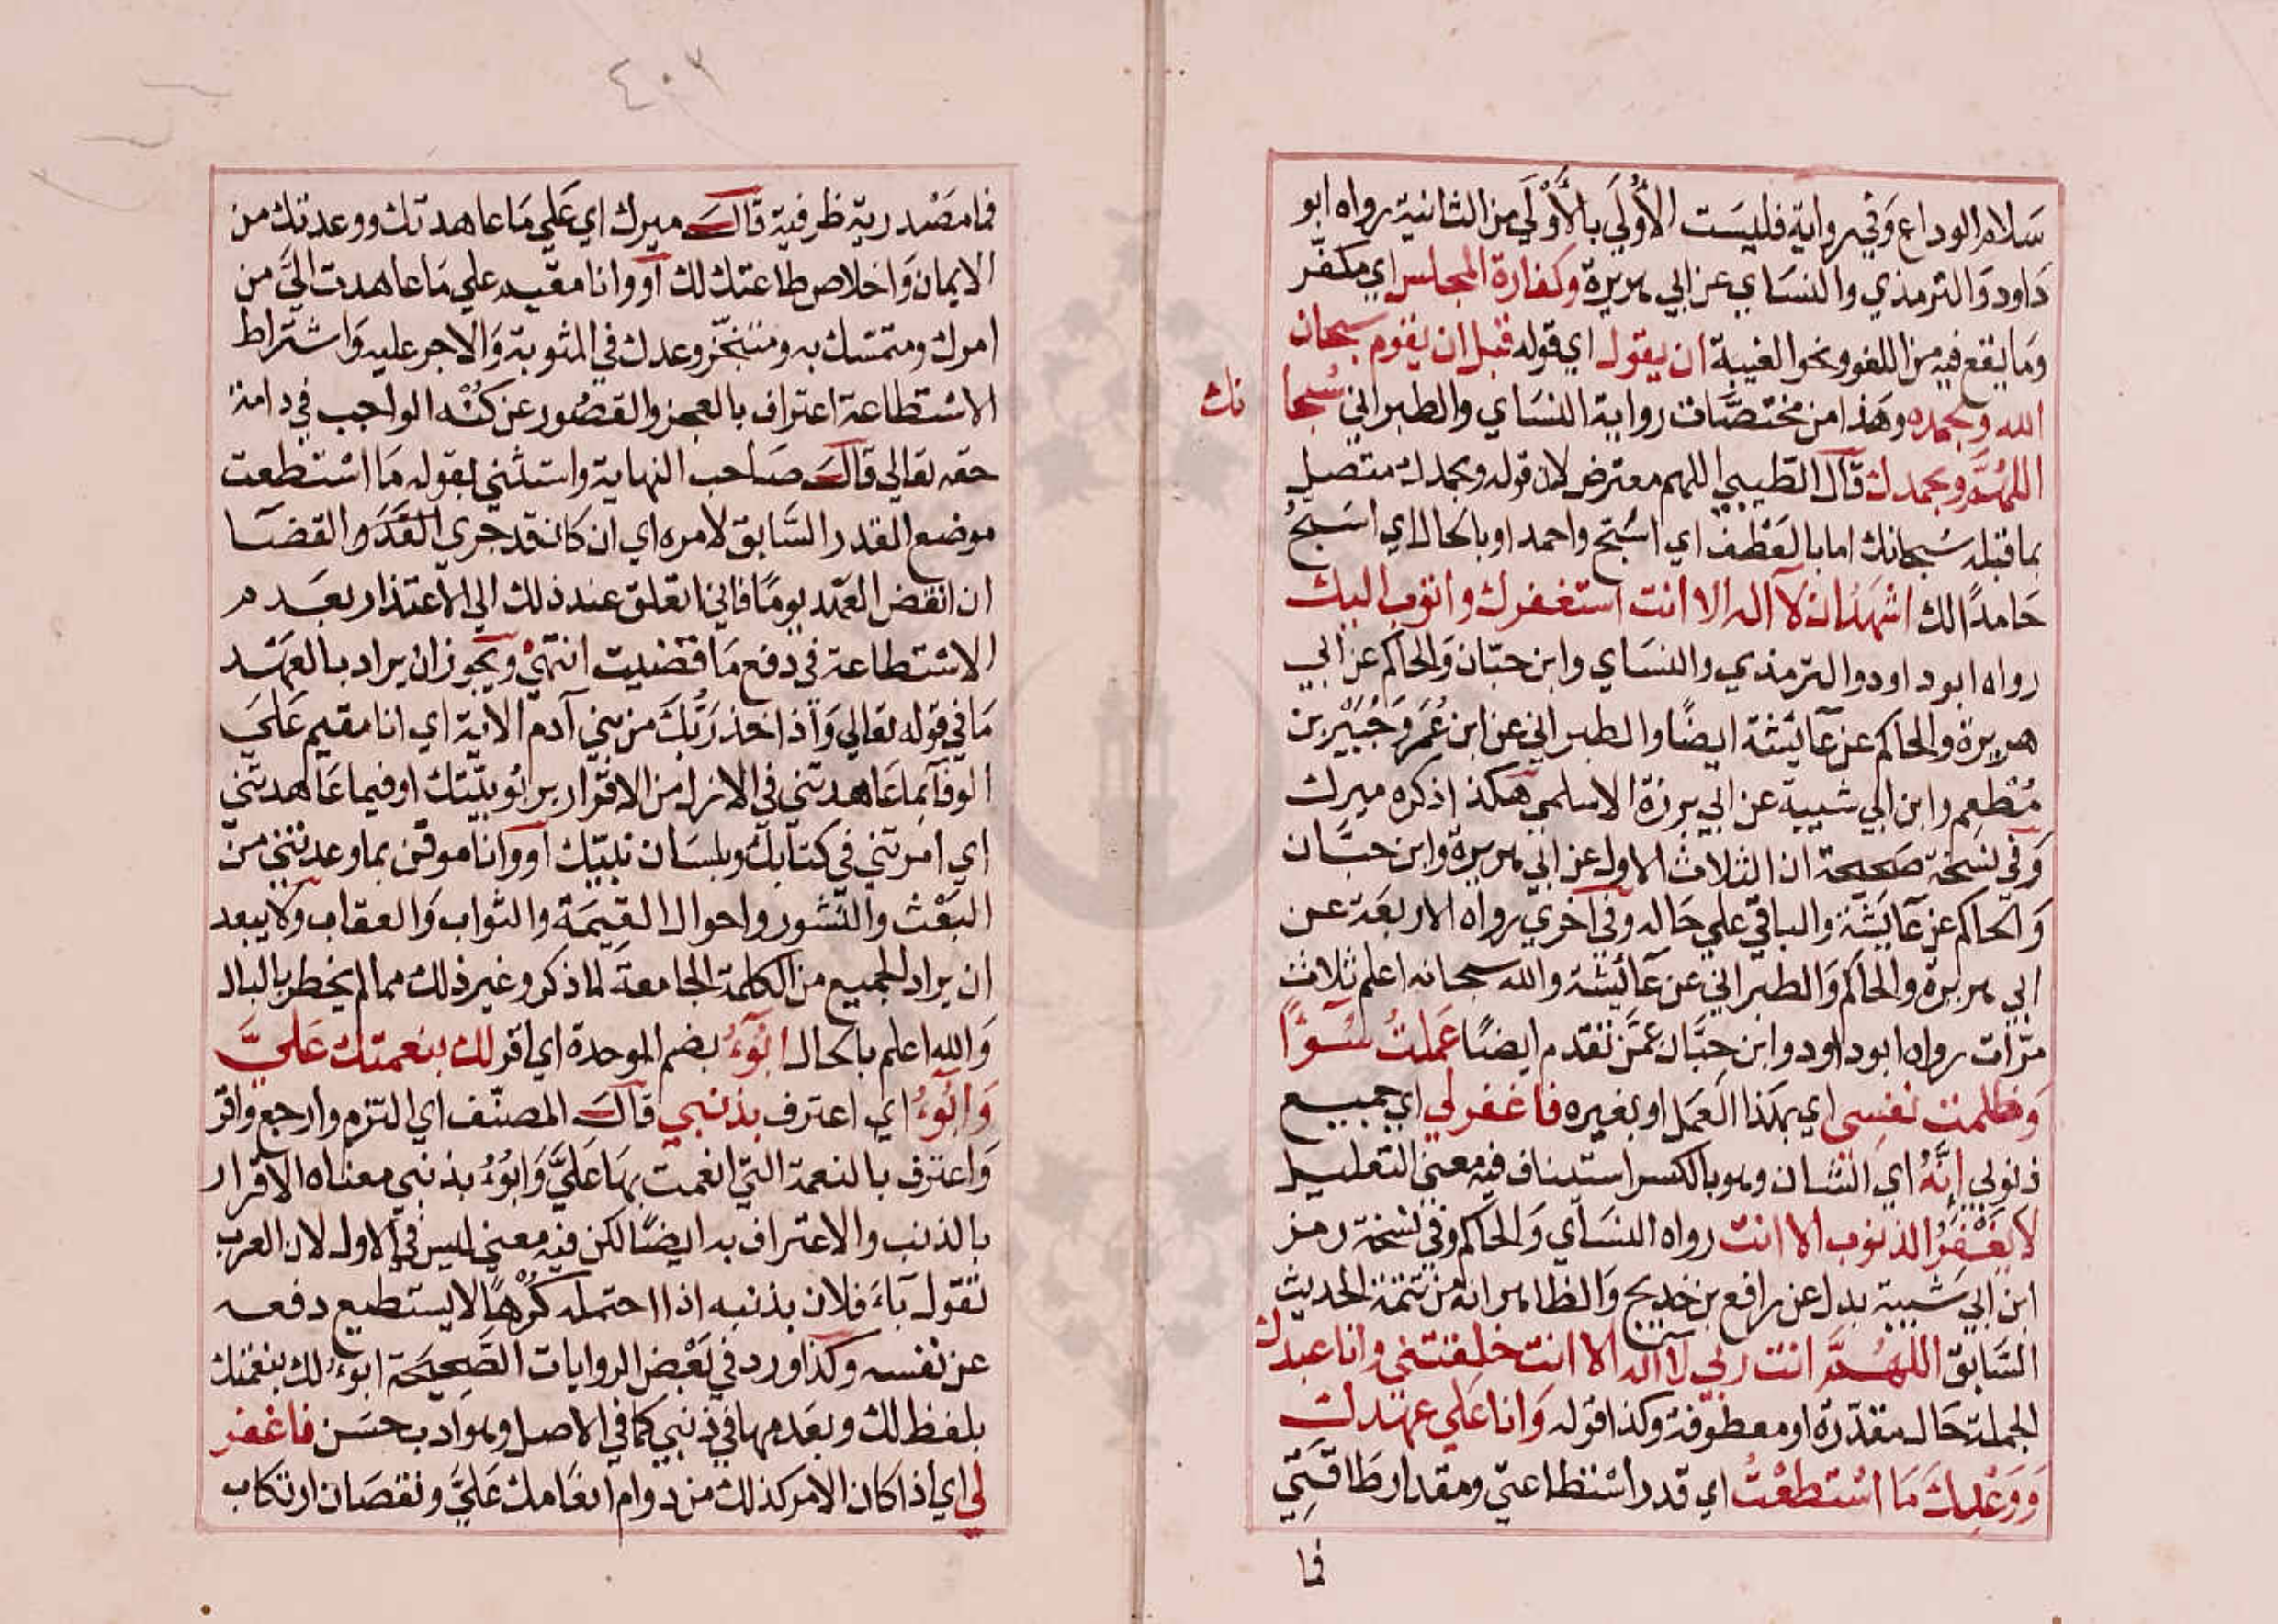 سَلام الوداع وَفي رواية فليسَت الأُولَي بالأَوْلَي من الثانية رواه ابو
دَاود وَالترمذي والنسَاي عن ابي هريرة وكفارة المجلس اي مكفّر
وما يقع فيه من اللغو ونحو الغيبة ان يقول اي قوله قبل ان يقوم سبحان
الله وبحمده وهَذا من مختصّات رواية النسَاي والطبراني سُبحا نك
اللهُمَّ وبحمدك قال الطيبي اللهم معترض لان قوله وبحمدك متصل
بما قبله سُبحانك اما بالعَطْف اي اسَبّح واحمد او بالحال اي اسَبّحُ
حَامدًا لك اشهَدُ ان لا اله الا انت استغفرك واتوب اليك
رواه ابو داود والترمذي والنسَاي وابن حبّان وَالحاكم عن ابي
هريرة والحاكم عن عآيشة ايضًا والطبراني عن ابن عُمَر وَجُبَيْر بن
مُطْعِم وابن ابي شيبة عن ابي برزة الاسلمي هكذا ذكره ميرك
وَفي نسخة صَحيحة ان الثلاث الاول عن ابي هريرة وابن حبَّان
وَالحاكم عن عآيشَة والباقي علي حَاله وفي اخري رواه الاربعَة عن
ابي هريرة والحاكم وَالطبراني عن عَآئيشة والله سبحانه اعلم ثلاث
مرّات رواه ابو داود وابن حبَّان عمَّن تقدم ايضًا عَملتُ سُوٓءًا
وَظلمت نفسِى اي بهَذا العَمَل او بغيره فاغفر لي اي جميع
ذنوبي إنَّهُ اي الشان وهو بالكسر استيناف فيه معني التعليل
لا يَغْفِرُ الذنوب الا انت رواه النسَآي وَالحاكم وفي نسخة رمز
ابن ابي شَيبة بدل عن رافع بن خديج وَالظاهر انه من تتمة الحديث
السَّابق اللهُمَّ انت ربي لا اله الا انت خلقتني وانا عبدك
الجملة حَال مقدّرة او معطوفة وكذا قوله وَانا عَلي عهدك
وَوَعْدِكَ مَا اسْتطعْتُ اي قدر اسْتطاعتي ومقدار طَاقَتِي
فما
٤٠٦
فما مصْدرية ظرفية قالَ ميرك اي عَلي مَا عاهدتك ووعدتك من
الايمان وَاخلاص طاعتك لك أو وانا مقيم علي مَا عاهدت اليَّ من
امرك ومتمسّك به ومتنجّز وعدك في المثوبة وَالاجر عليه وَاشتراط
الاسْتطاعة اعتراف بالعجز والقصُور عن كُنْه الواجب في دامة
حقه تعالي قالَ صَاحب النهاية واستثني بقوله مَا اسْتطعت
موضع القدر السَّابق لامره اي ان كان قد جري القَدَر والقضَا
ان انقض العَهْد يومًا فاني اتعلق عند ذلك الي الاعتذار بعَدم
الاسْتطاعة في دفع مَا قضيت انتهيٰ ويجوز ان يراد بالعَهْد
مَا في قوله تعالي وَاذ اخذ رَبُّكَ من بني آدم الآية اي انا مقيم عَلَي
الوفآ بما عَاهدتني في الازل من الاقرار بربُوبيّتك او فيما عَاهدتني
اي امرتني في كتابك وبلسَان نبيّك أو وانا موقن بما وعدتني من
البَعْث والنّشور واحوال القيمَة والثواب وَالعقاب ولا يبعد
ان يراد الجميع من الكلمة الجامعة لما ذكر وغير ذلك مما لم يخطر بالبال
وَالله اعلم بالحال ابُوٓءُ بضم الموحدة اي اقر لك بنعمتك عَليَّ
وَابُوٓءُ اي اعترف بذنبي قالَ المصنّف اي التزم وارجع واقر
وَاعترف بالنعمة التي انعمت بهَا عَلَيَّ وَابُوُءُ بذنبي معناه الاقرار
بالذنب والاعتراف به ايضًا لكن فيه معني ليس في الاول لان العرب
تقول بَآءَ فلان بذنبه اذا احتمله كُرْهًا لا يستطيع دفعه
عن نفسه وكذا ورد في بَعْض الروايات الصَّحِيحَة ابوءُ لك بنعمتك
بلفظ لك وبعَدمها في ذنبي كما في الاصل وهو ادب حسَن فاغفر
لي اي اذا كان الامر كذلك من دوام انعَامك عَليَّ ونقصَان ارتكاب